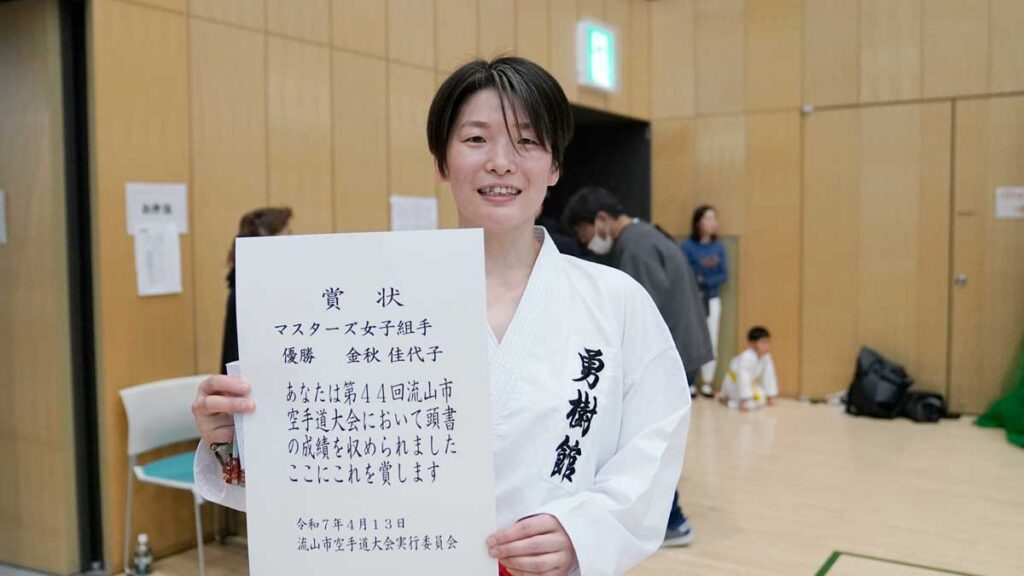 賞 状
マスターズ女子組手
優勝 金秋 佳代子
あなたは第44回流山市
空手道大会において頭書
の成績を収められました
ここにこれを賞します
令和7年4月13日
流山市空手道大会実行委員会
勇樹館